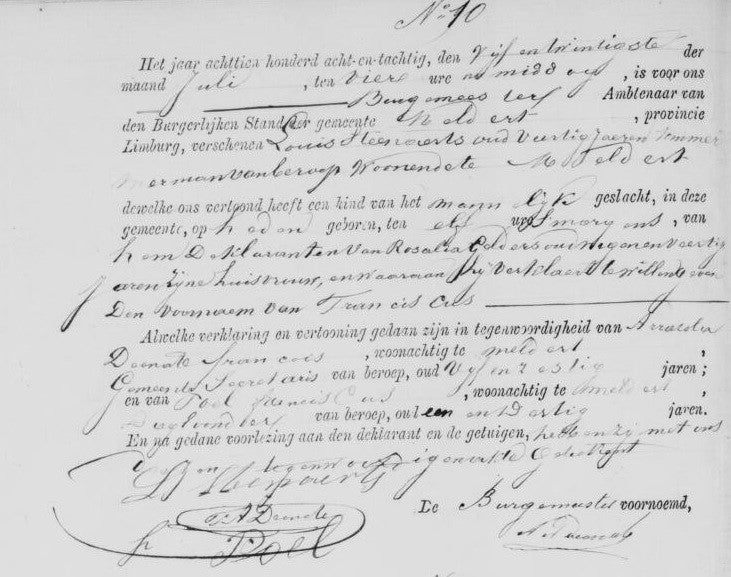 No 10
Het jaar achttien honderd acht-en-tachtig, den Vijf en twintigste der
maand Juli, ten Vier ure na midd ag, is voor ons
Burgemeester Ambtenaar van
den Burgerlijken Stand der gemeente Meldert, provincie
Limburg, verschenen Louis Steenaerts oud Veertig jaeren Timmer
merman van beroep Woonende te Meldert
dewelke ons vertoond heeft een kind van het mannelijk geslacht, in deze
gemeente, op heden geboren, ten elf ure Smorgens, van
hem Deklarant en Van Rosalia Gelders oud negen en veertig
jaren zijne huisvrouw, en waaraan hij verklaert te willen geven
Den voornaem van Franciscus
Alwelke verklaring en vertooning gedaan zijn in tegenwoordigheid van
francois, woonachtig te meldert,
Gemeente Secretaris van beroep, oud Vijf en zestig jaren;
en van Poel franciscus, woonachtig te meldert,
Daglooner van beroep, oud een en dertig jaren.
En na gedane voorlezing aan den deklarant en de getuigen, hebben zij met ons
tegenwoordige akte
De Burgemeester voornoemd,
Poel